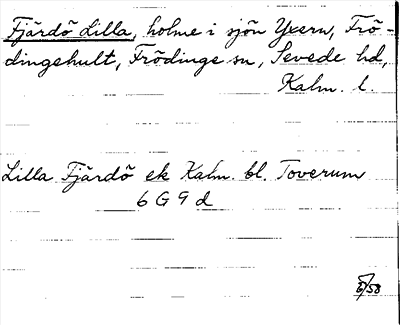 Fjärdö Lilla, holme i sjön Yxern, Frö-
dingehult, Frödinge sn, Sevede hd,
Kalm. l.
Lilla Fjärdö ek Kalm. bl. Toverum
6 G 9 d
6/58